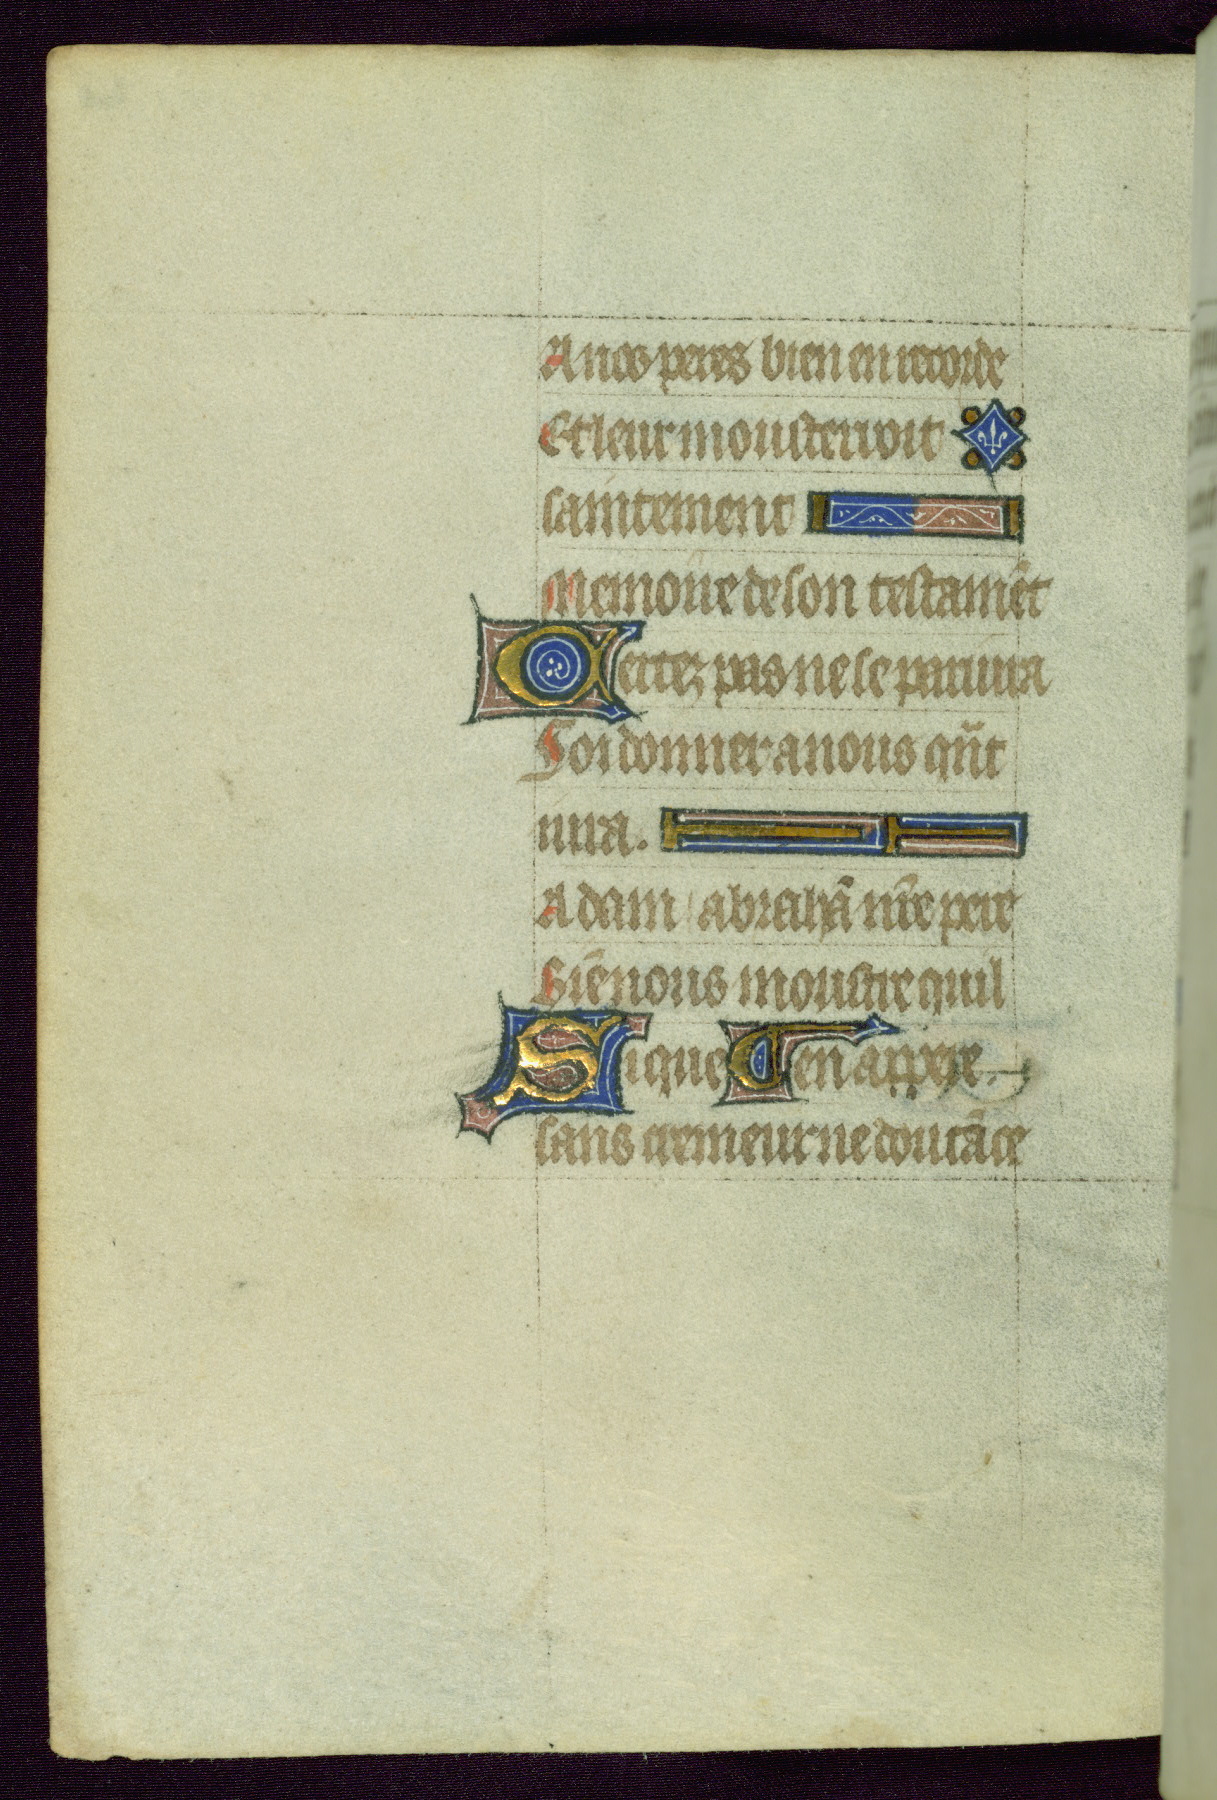 A nos peres bien en recorde
Et leur mousterroit
saintement
Memoire de son testamēt
Certez pas ne se pariura
Por donner a nous qn̄t
iura.
Adam abrahā nr̄e pere
Biē nous moustre quil
Si que en appere.
sans cremeur ne doutāce